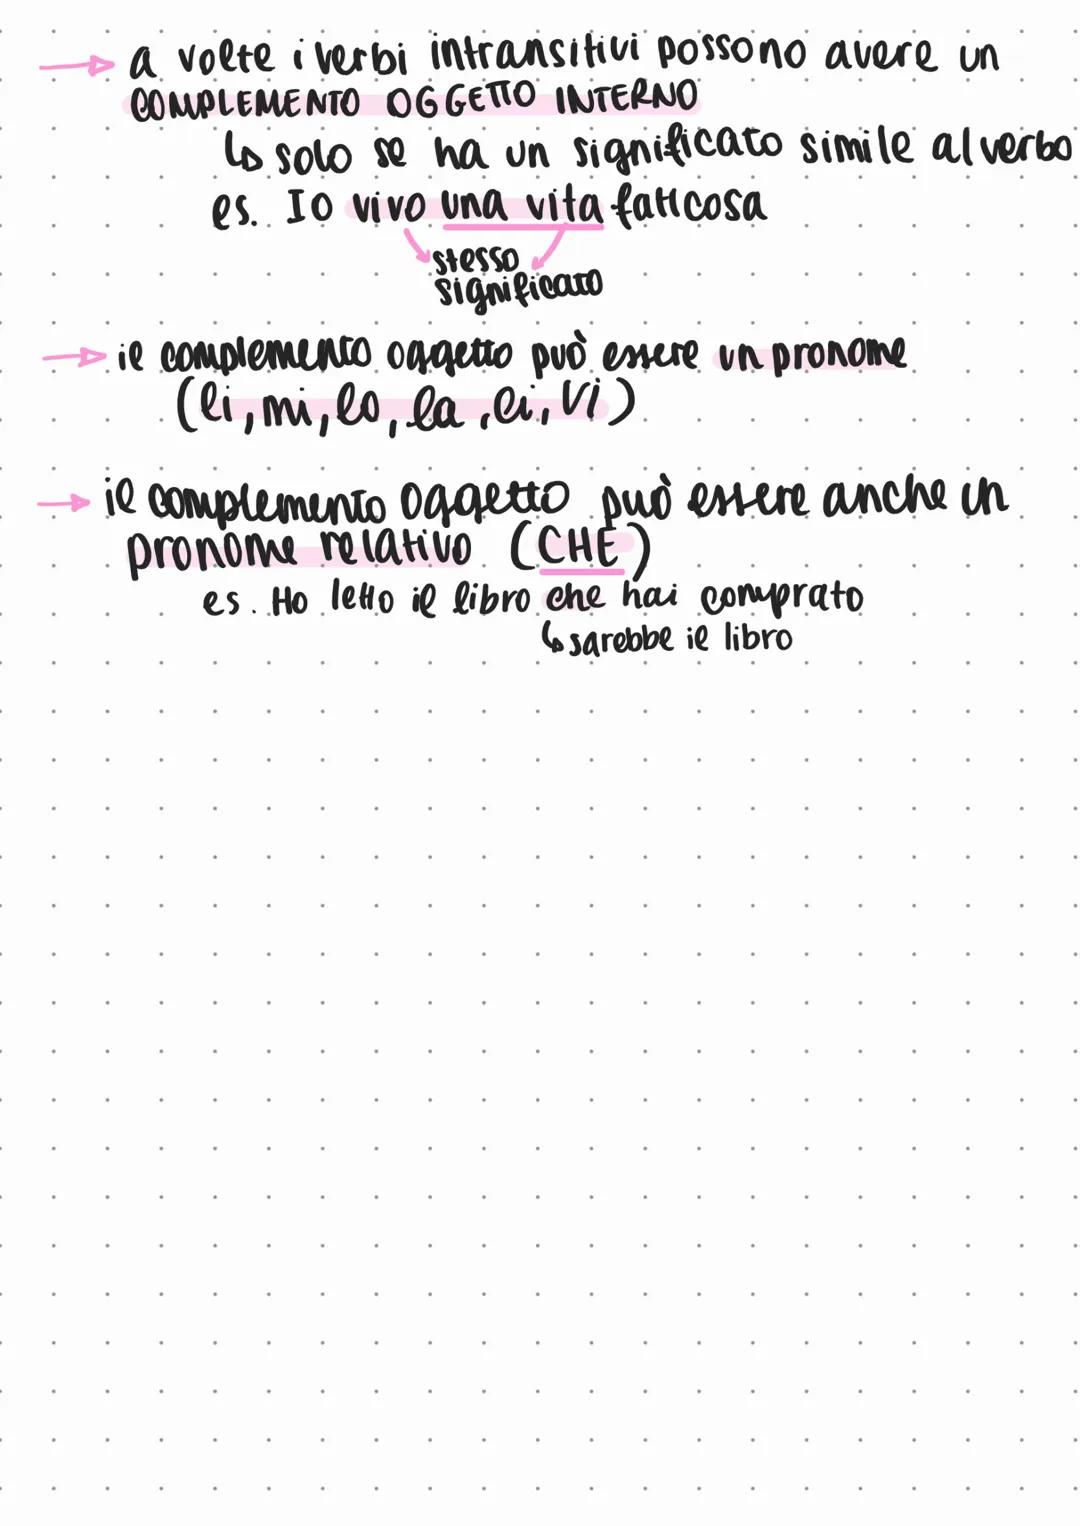 → a volte i verbi intransitivi possono avere un
COMPLEMENTO OGGETTO INTERNO
↳ solo se ha un significato simile al verbo
es. Io vivo una vita faticosa
stesso
significato
→ il complemento oggetto può essere un pronome
(li, mi, lo, la, ci, vi)
→ il complemento oggetto può essere anche un
pronome relativo (CHE)
es. Ho letto il libro che hai comprato
↳ sarebbe il libro